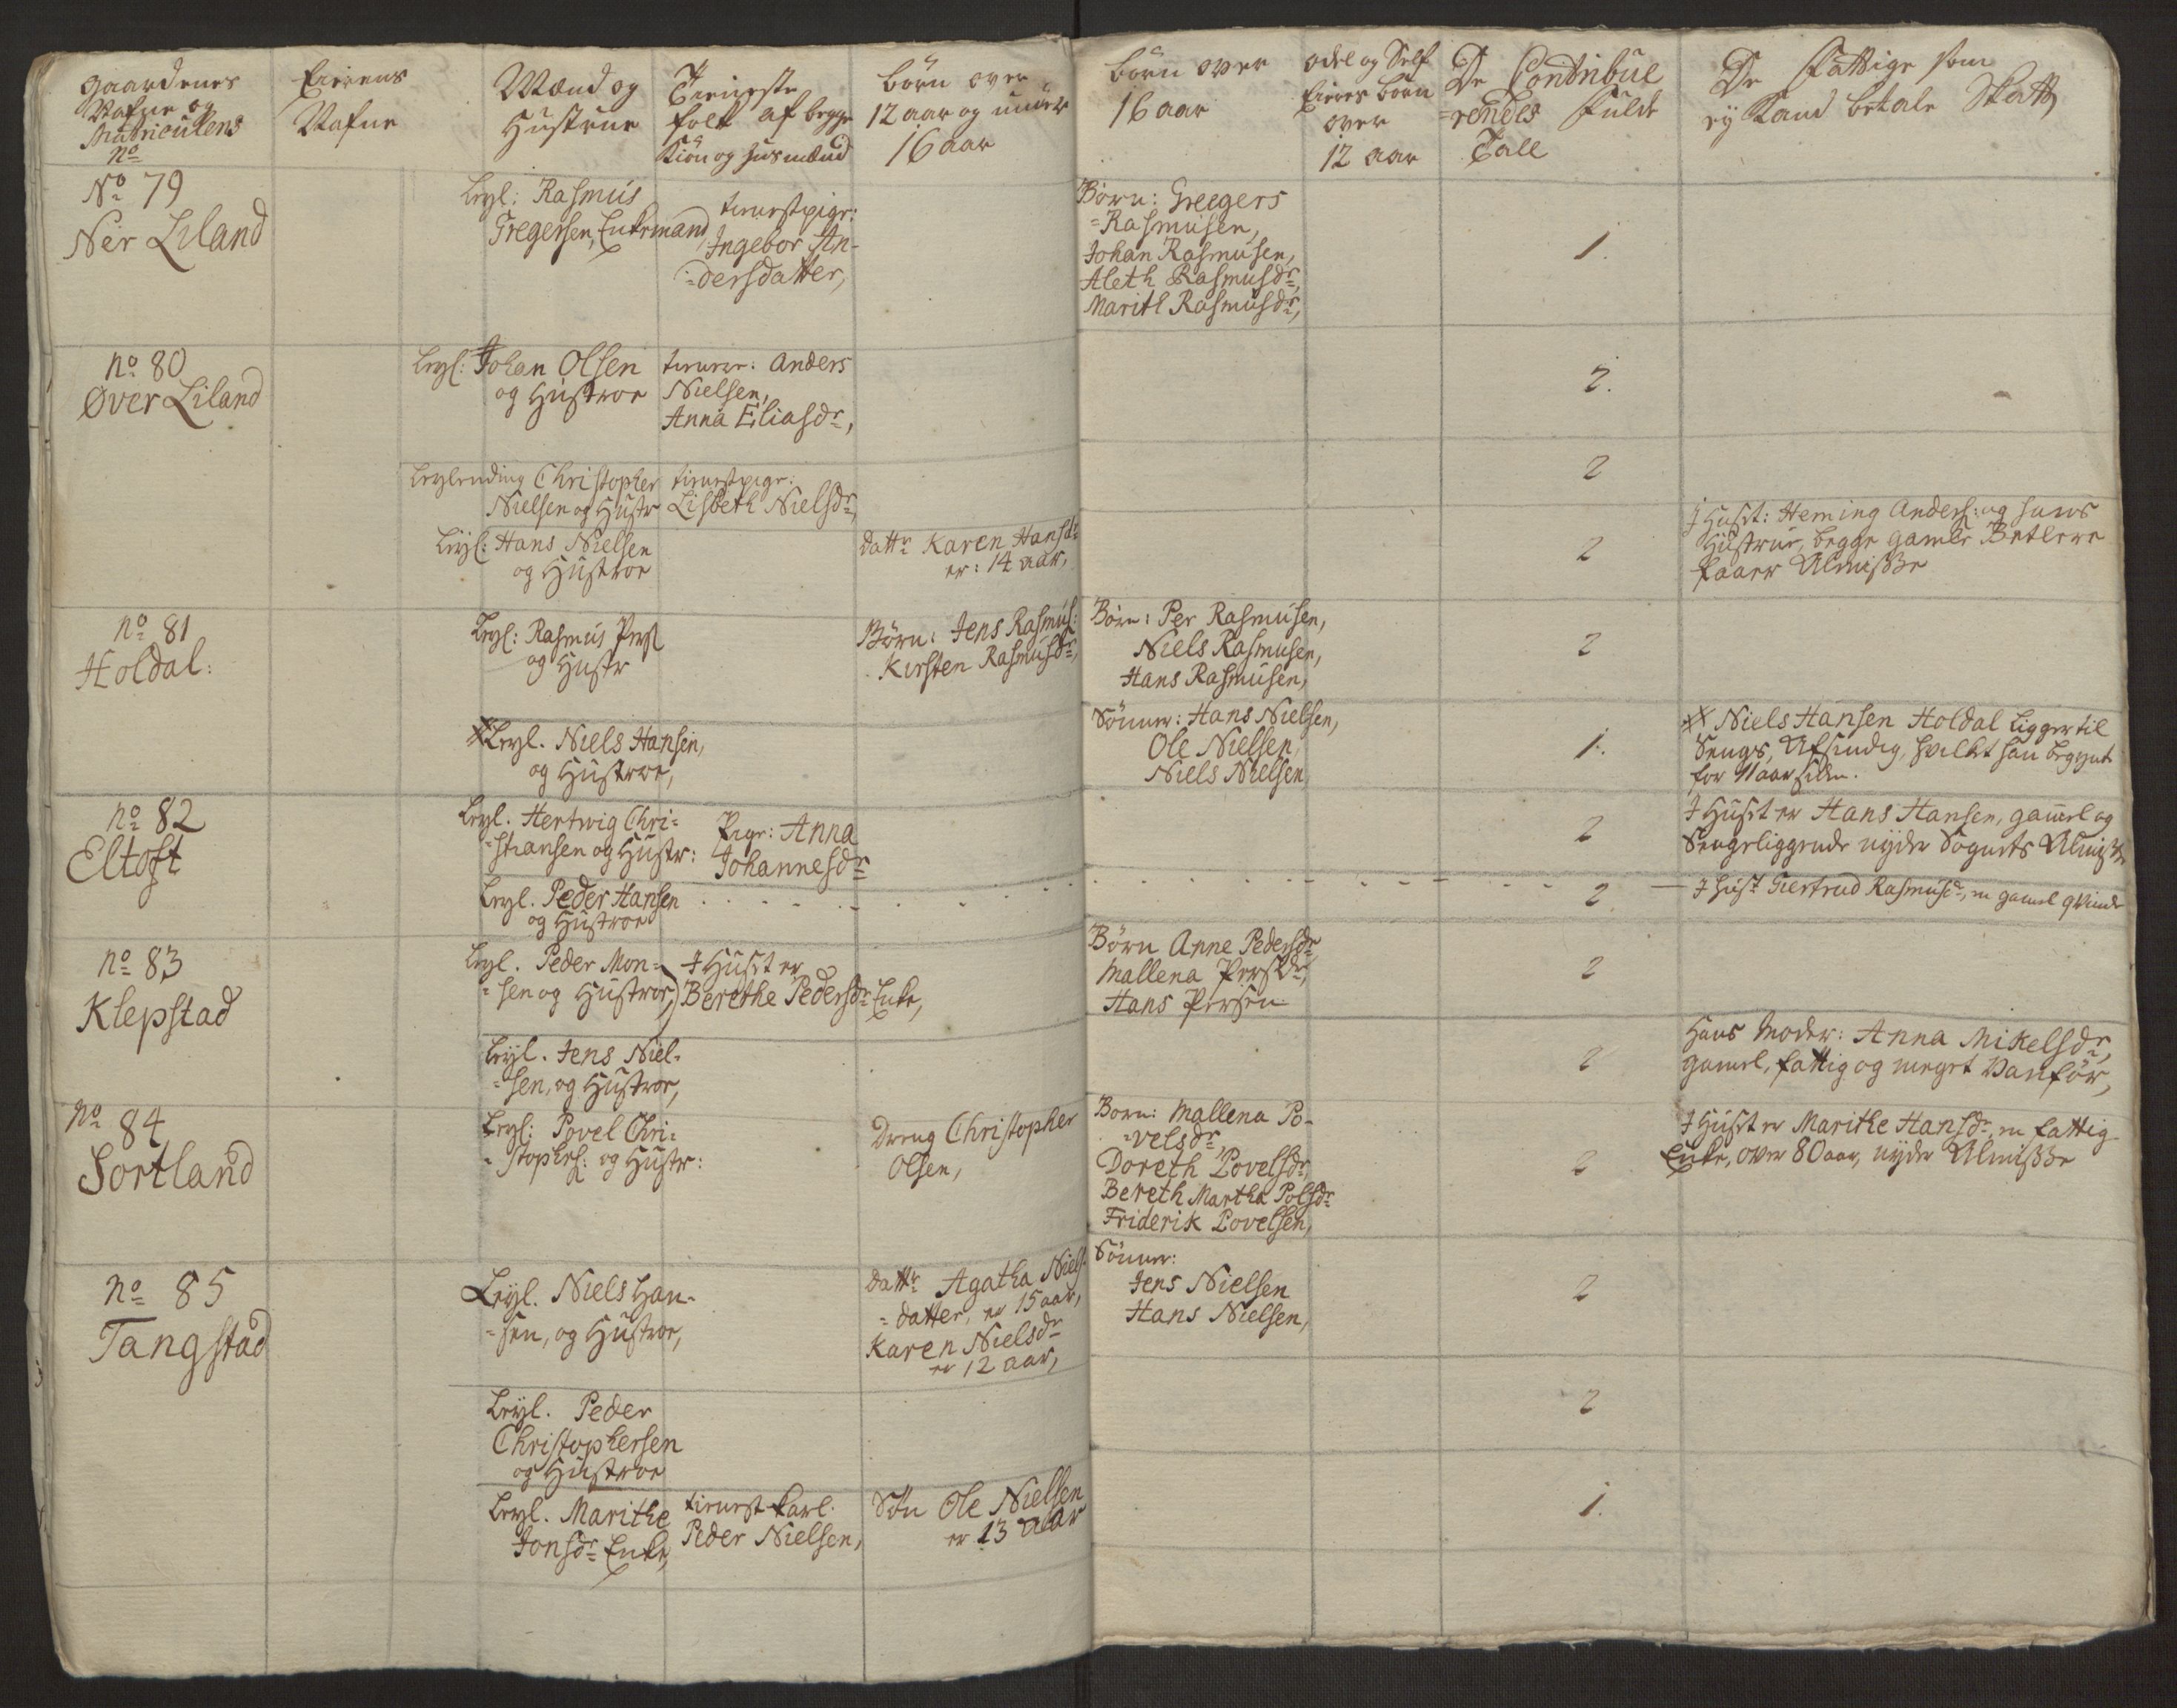 Gaardenes
Nafne og
Matriculens
No
Eierens
Nafne
Mænd og
Hustrue
Tieniste
folk af begge
Kiøn og Husmænd
börn over
12 aar og under
16 aar
börn over
16 aar
odel og Self
Eieres börn
over
12 aar
De Contribue
=rendes fulde
Tall
De Fattige som
ey kand betale Skatt
No 79
Ner Liland
Leyl: Rasmus
Gregersen, Enkemand
tienestpige:
Ingebor An-
=dersdatter,
Börn: Greegers
=Rasmusen,
Johan Rasmusen,
Aleth Rasmusdr,
Marith Rasmusdr,
1.
no 80
Øver Liland
Leyl: Johan Olsen
og Hustroe
tienere: Anders
Nielsen,
Anna Eliasdr,
2.
Leylending Christopher
Nielsen og Hustr
tienestpige:
Lisbeth Nielsdr,
2
Leyl: Hans Nielsen
og Hustroe
dattr Karen Hansdr
er: 14 aar,
2
J Huset: Heming Anders: og hans
Hustrue, begge gamle Betlere
faaer Almisse
no 81
Holdal:
Leyl: Rasmus Pers
og Hustr
Börn: Jens Rasmus:
Kirsten Rasmusdr,
Börn: Per Rasmusen,
Niels Rasmusen,
Hans Rasmusen,
2
Leyl. Niels Hansen,
og Hustroe,
Sönner: Hans Nielsen,
Ole Nielsen,
Niels Nielsen
1.
Niels Hansen Holdal Ligger til
Sengs, Afsindig, hvilket han begynt
for 11 aar siden.
no 82
Eltoft
Leyl. Hertwig Chri=
=stiansen og Hustr:
Pige: Anna
Johannesdr
2
J Huset er Hans Hansen, gamel og
Sengeliggende nyder Sognets Almisse
Leyl. Peder Hansen
og Hustroe
2
J Huset Giertrud Rasmusdr, en gamel qvinde
no 83
Klepstad
Leyl. Peder Mon=
=sen og Hustroe,
J Huset er
Berethe Pedersdr Enke,
Börn Anne Pedersdr
Mallena Persdr,
Hans Persen
2
Leyl. Jens Niel-
=sen, og Hustroe,
2
Hans Moder: Anna Mikelsdr,
gamel, fattig og meget Vanför,
No 84
Sortland
Leyl: Povel Chri=
=stophers: og Hustr:
Dreng Christopher
Olsen,
Börn: Mallena Po-
=velsdr
Doreth Povelsdr,
Bereth Martha Polsdr
Friderik Povelsen,
2
J Huset er Marithe Hansdr, en fattig
Enke, over 80 aar, nyder Almisse
no 85
Tangstad
Leyl. Niels Han-
=sen, og Hustroe,
dattr Agatha Niels-
=datter, er 15 aar,
Karen Nielsdr
er 12 aar,
Sönner:
Jens Nielsen
Hans Nielsen,
2
Leyl. Peder
Christophersen
og Hustroe
2
Leyl. Marithe
Jonsdr Enke,
tienest karl.
Peder Nielsen,
Sön Ole Nielsen
er 13 aar
1.